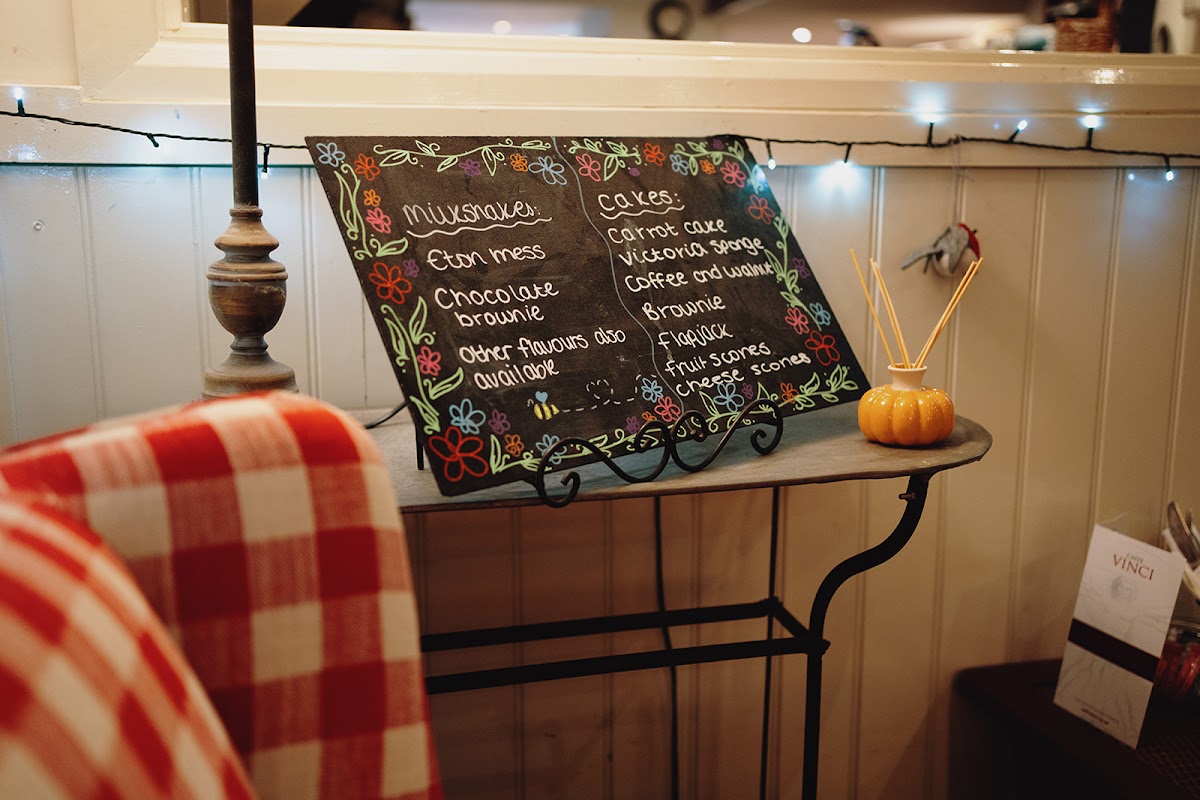 Milkshakes:
Eton mess
Chocolate
brownie
Other flavours also
available
Cakes:
Carrot cake
Victoria sponge
Coffee and walnut
Brownie
Flapjack
fruit scones
cheese scones
CAFFÈ
VINCI